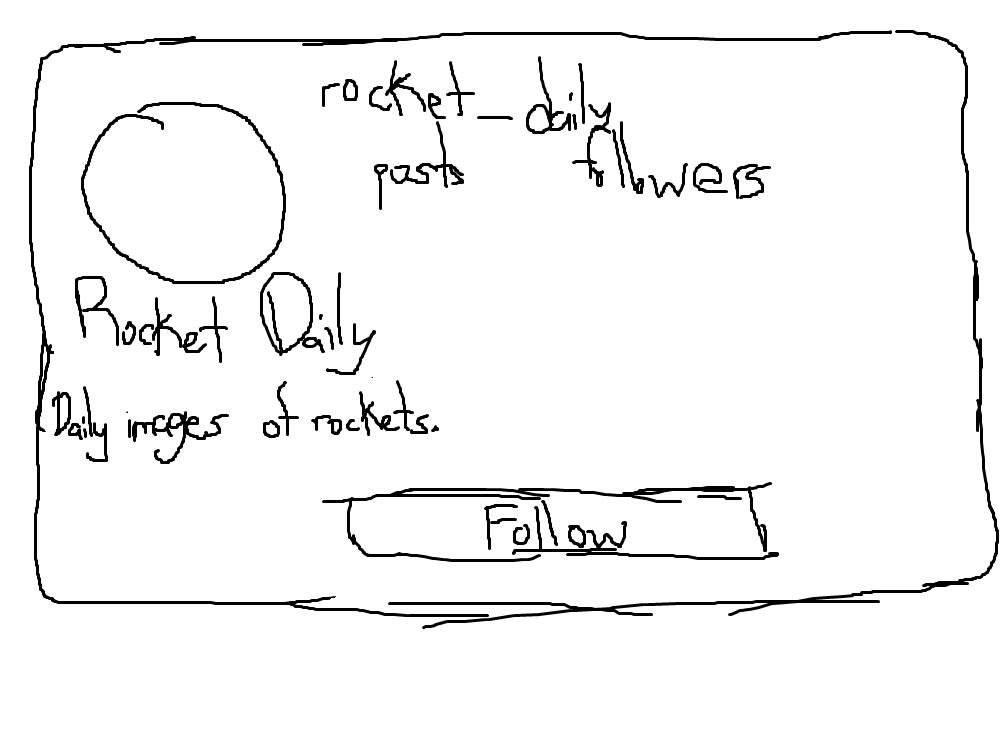 rocket_daily
posts followers
Rocket Daily
Daily images of rockets.
Follow